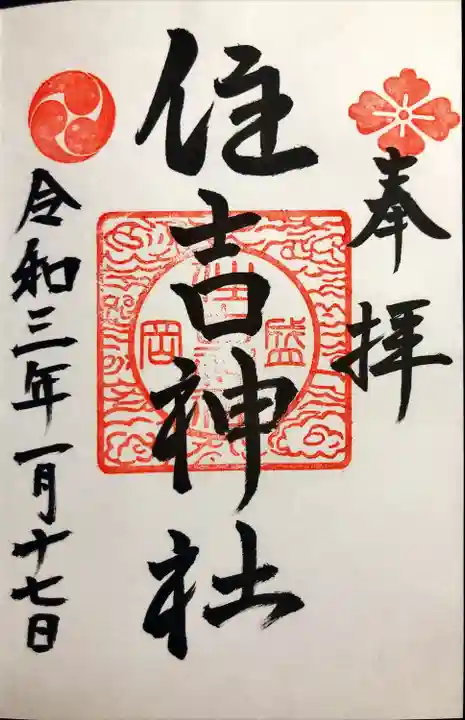 奉拝
住吉神社
盛岡
令和三年一月十七日